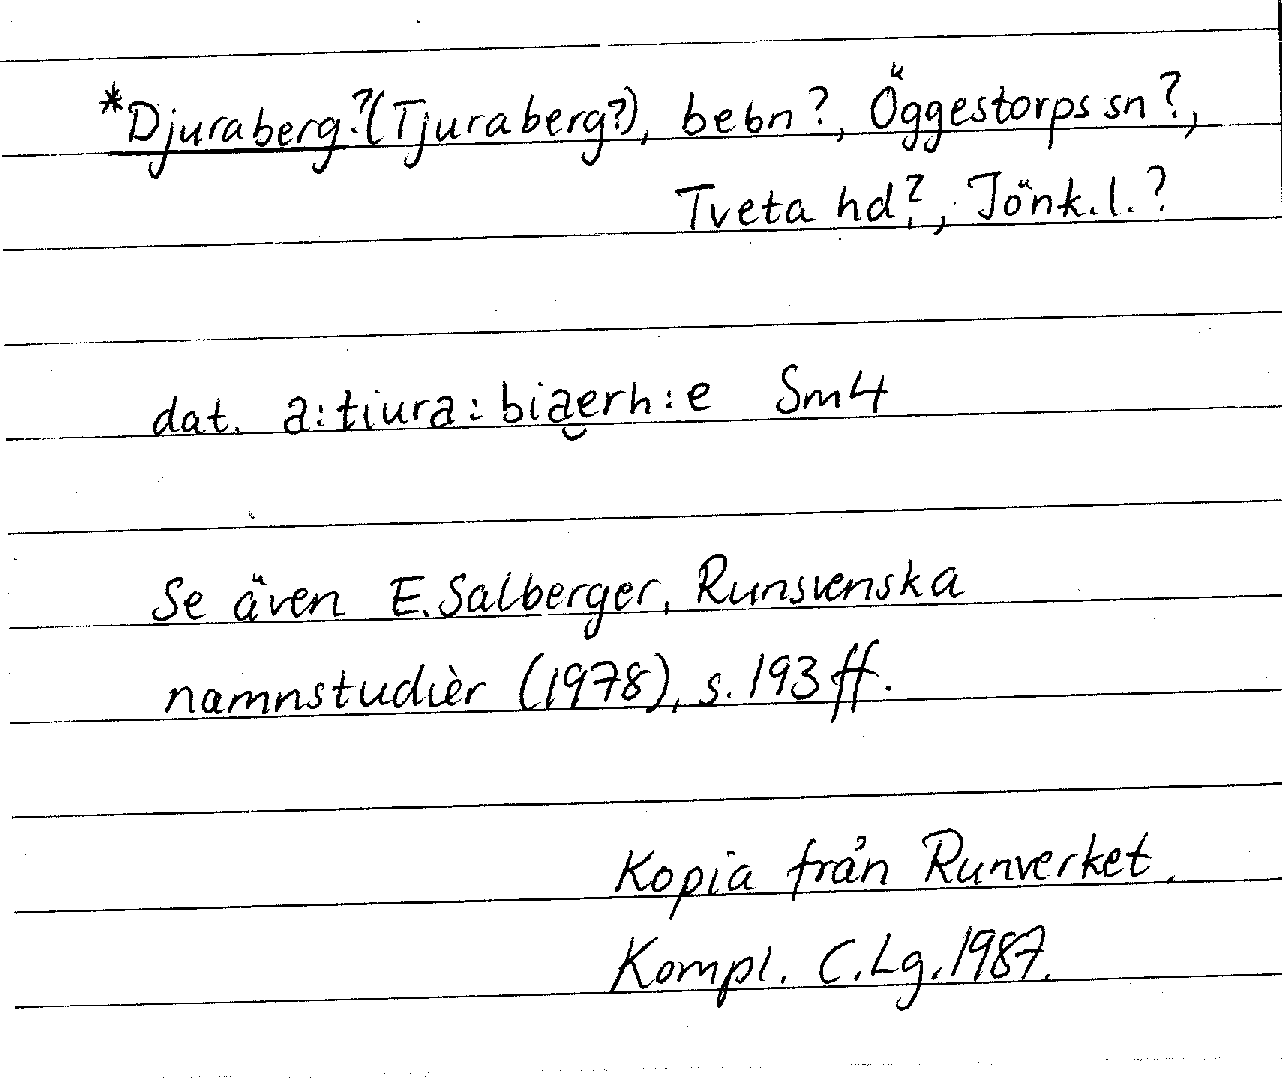 *Djuraberg? (Tjuraberg?), bebn?, Öggestorps sn?,
Tveta hd?, Jönk.l.?
dat. a:tiura:bia͜erh:e Sm4
Se även E.Salberger, Runsvenska
namnstudièr (1978), s. 193 ff.
Kopia från Runverket.
Kompl. C.Lg. 1987.